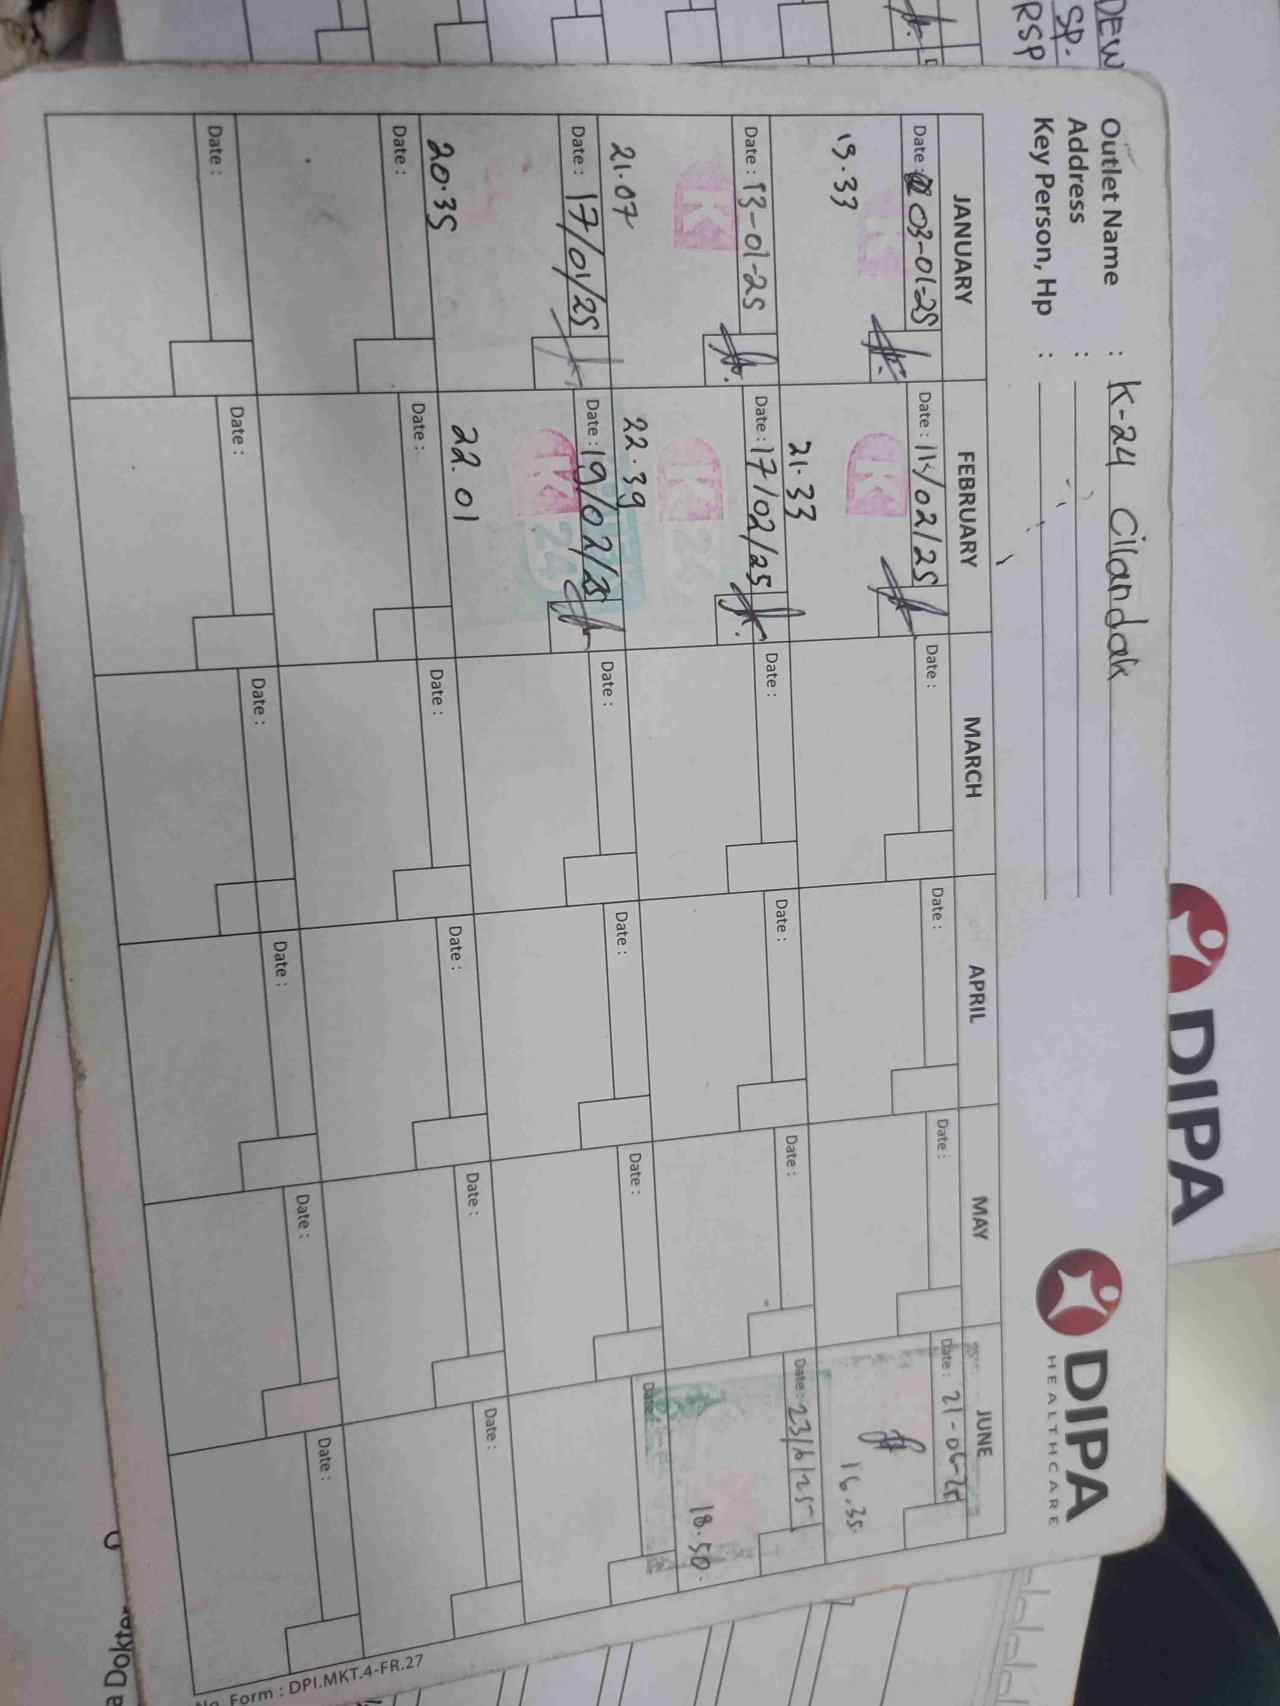 DEW
SP.
RSP
DIPA
DIPA
HEALTHCARE
Outlet Name : K-24 Cilandak
Address :
Key Person, Hp :
JANUARY FEBRUARY MARCH APRIL MAY JUNE
Date : 03-01-25 Date : /02/25 Date : Date : Date : Date : 21-06-25
19.33 21.33 16.35
Date : 13-01-25 Date : 17/02/25 Date : Date : Date : Date : 23/6/25
21.07 22.39 18.50
Date : 17/01/25 Date : 19/02/25 Date : Date : Date : Date :
20.35 22.01
Date : Date : Date : Date : Date : Date :
Date : Date : Date : Date : Date : Date :
No. Form : DPI.MKT.4-FR.27